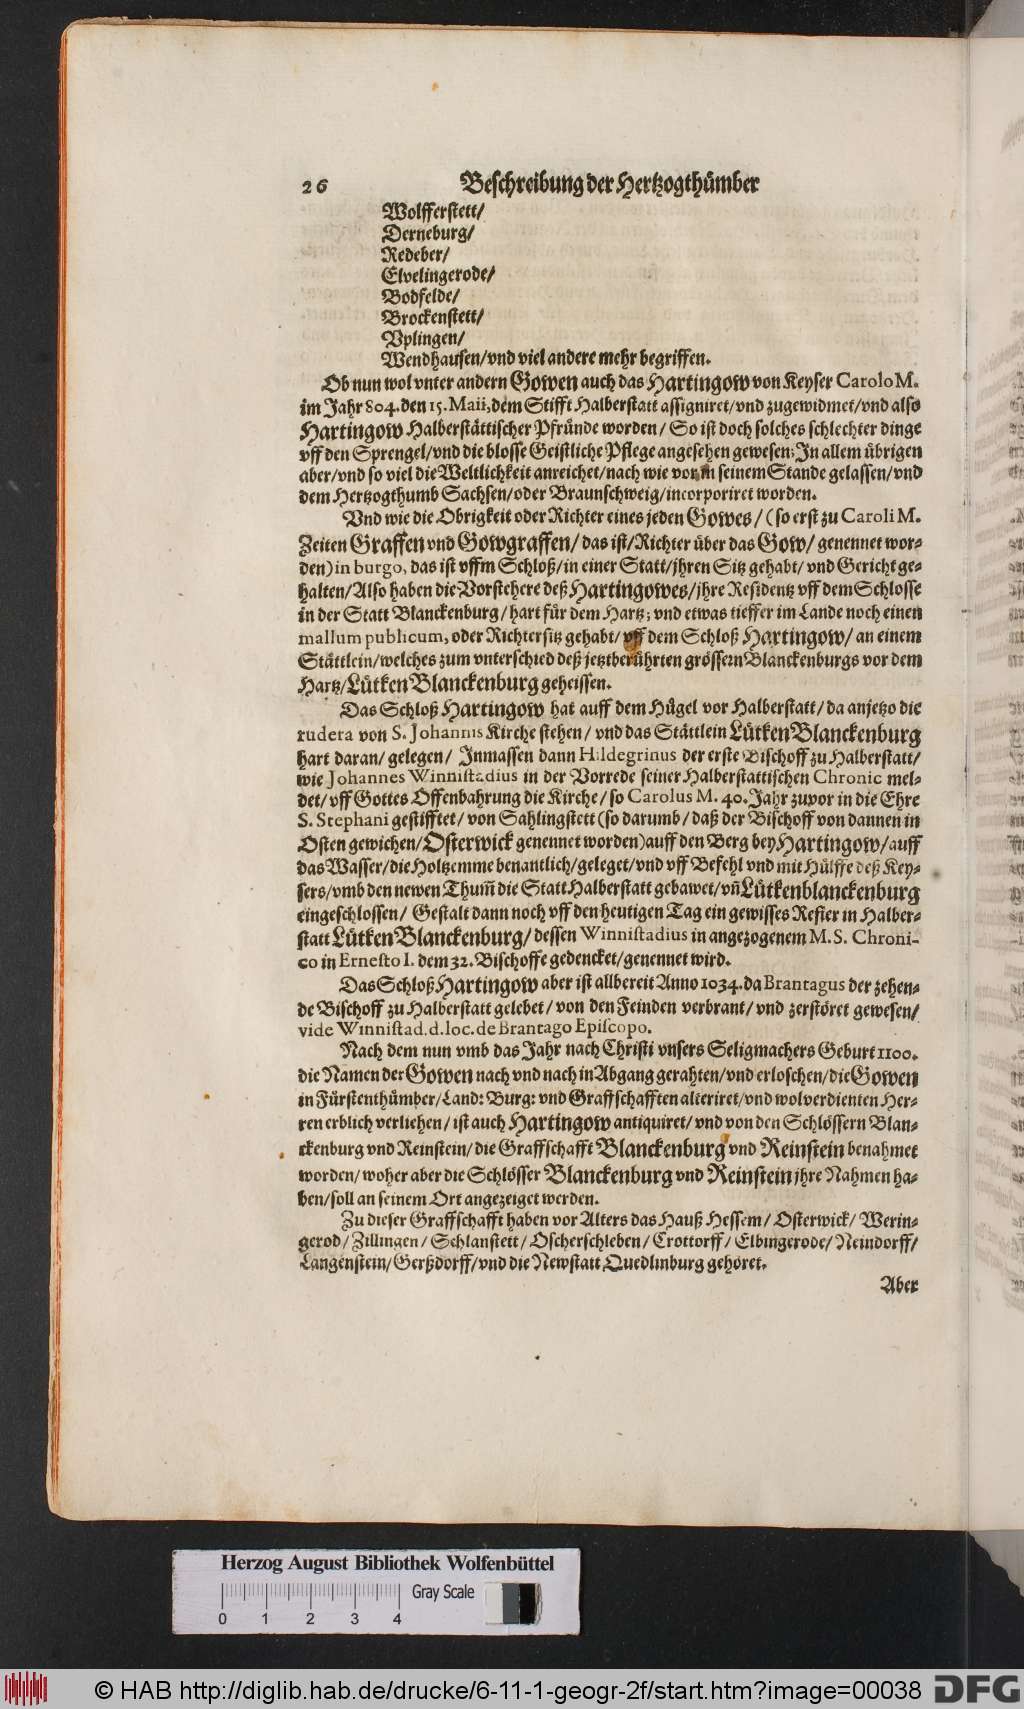 26 Beschreibung der Hertzogthümber
Wolfferstett/
Derneburg/
Redeber/
Elvelingerode/
Bodfelde/
Brockenstett/
Vplingen/
Wendhausen/vnd viel andere mehr begriffen.
Ob nun wol vnter andern Gowen auch das Hartingow von Keyser Carolo M.
im Jahr 804. den 15. Maii, dem Stifft Halberstatt assigniret/vnd zugewidmet/vnd also
Hartingow Halberstättischer Pfründe worden/ So ist doch solches schlechter dinge
vff den Sprengel/vnd die blosse Geistliche Pflege angesehen gewesen; In allem übrigen
aber/vnd so viel die Weltlichkeit anreichet/nach wie vor in seinem Stande gelassen/vnd
dem Hertzogthumb Sachsen/oder Braunschweig/incorporiret worden.
Vnd wie die Obrigkeit oder Richter eines jeden Gowes/ (so erst zu Caroli M.
Zeiten Graffen vnd Gowgraffen/ das ist/Richter über das Gow/ genennet wor-
den) in burgo, das ist vffm Schloß/in einer Statt/jhren Sitz gehabt/ vnd Gericht ge-
halten/Also haben die Vorstehere deß Hartingowes/jhre Residentz vff dem Schlosse
in der Statt Blanckenburg/ hart für dem Hartz; vnd etwas tieffer im Lande noch einen
mallum publicum, oder Richtersitz gehabt/ vff dem Schloß Hartingow/ an einem
Stättlein/welches zum vnterschied deß jetztberührten grössern Blanckenburgs vor dem
Hartz/Lütken Blanckenburg geheissen.
Das Schloß Hartingow hat auff dem Hügel vor Halberstatt/ da anjetzo die
rudera von S. Johannis Kirche stehen/ vnd das Stättlein Lütken Blanckenburg
hart daran/ gelegen/ Inmassen dann Hildegrinus der erste Bischoff zu Halberstatt/
wie Johannes Winnistadius in der Vorrede seiner Halberstattischen Chronic mel-
det/ vff Gottes Offenbahrung die Kirche/ so Carolus M. 40. Jahr zuvor in die Ehre
S. Stephani gestifftet/ von Sahlingstett (so darumb/ daß der Bischoff von dannen in
Osten gewichen/ Osterwick genennet worden) auff den Berg bey Hartingow/ auff
das Wasser/die Holtzemme benantlich/geleget/vnd vff Befehl vnd mit Hülffe deß Key-
sers/vmb den newen Thum̃ die Statt Halberstatt gebawet/vñ Lütkenblanckenburg
eingeschlossen/ Gestalt dann noch vff den heutigen Tag ein gewisses Refier in Halber-
statt Lütken Blanckenburg/ dessen Winnistadius in angezogenem M.S. Chroni-
co in Ernesto I. dem 32. Bischoffe gedencket/genennet wird.
Das Schloß Hartingow aber ist allbereit Anno 1034. da Brantagus der zehen-
de Bischoff zu Halberstatt gelebet/ von den Feinden verbrant/ vnd zerstöret gewesen/
vide Winnistad. d. loc. de Brantago Episcopo.
Nach dem nun vmb das Jahr nach Christi vnsers Seligmachers Geburt 1100.
die Namen der Gowen nach vnd nach in Abgang gerahten/vnd erloschen/die Gowen
in Fürstenthümber/Land: Burg: vnd Graffschafften alteriret/vnd wolverdienten Her-
ren erblich verliehen/ ist auch Hartingow antiquiret/ vnd von den Schlössern Blan-
ckenburg vnd Reinstein/die Graffschafft Blanckenburg vnd Reinstein benahmet
worden/woher aber die Schlösser Blanckenburg vnd Reinstein jhre Nahmen ha-
ben/soll an seinem Ort angezeiget werden.
Zu dieser Graffschafft haben vor Alters das Hauß Hessem/ Osterwick/ Werin-
gerod/ Zillingen/ Schlanstett/ Oscherschleben/ Crottorff/ Elbingerode/ Neindorff/
Langenstein/Gerßdorff/vnd die Newstatt Quedlinburg gehöret.
Aber
Herzog August Bibliothek Wolfenbüttel
Gray Scale
0 1 2 3 4
© HAB http://diglib.hab.de/drucke/6-11-1-geogr-2f/start.htm?image=00038 DFG